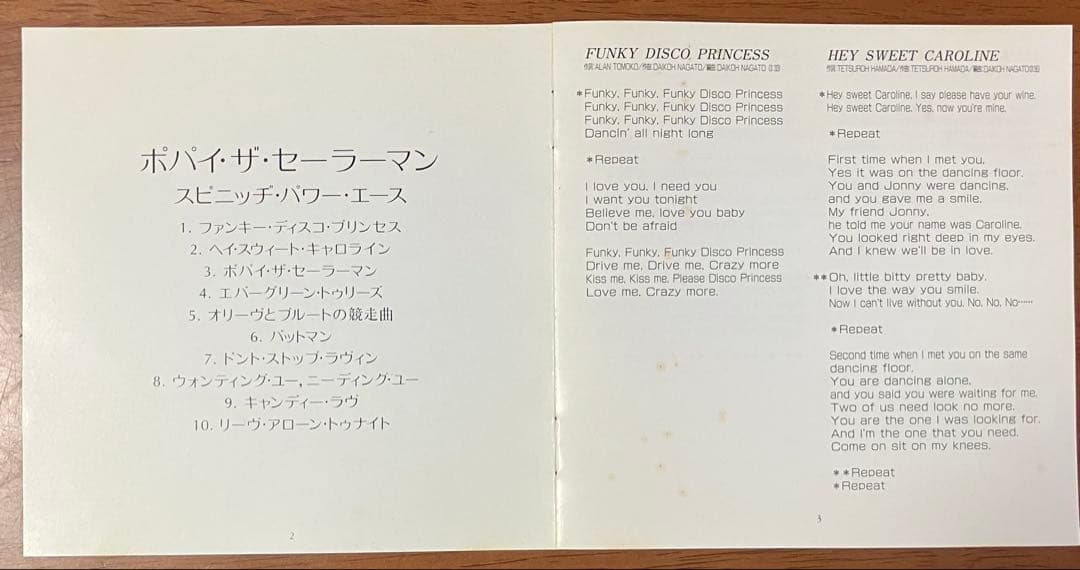 ポパイ・ザ・セーラーマン
スピニッヂ・パワー・エース
1. ファンキー・ディスコ・プリンセス
2. ヘイ・スウィート・キャロライン
3. ポパイ・ザ・セーラーマン
4. エバーグリーン・トゥリーズ
5. オリーヴとブルートの競走曲
6. バットマン
7. ドント・ストップ・ラヴィン
8. ウォンティング・ユー, ニーディング・ユー
9. キャンディー・ラヴ
10. リーヴ・アローン・トゥナイト
2
FUNKY DISCO PRINCESS
作詞:ALAN TOMOKO/作曲:DAIKOH NAGATO/編曲:DAIKOH NAGATO
*Funky, Funky, Funky Disco Princess
Funky, Funky, Funky Disco Princess
Funky, Funky, Funky Disco Princess
Dancin' all night long
*Repeat
I love you, I need you
I want you tonight
Believe me, love you baby
Don't be afraid
Funky, Funky, Funky Disco Princess
Drive me, Drive me, Crazy more
Kiss me, Kiss me, Please Disco Princess
Love me, Crazy more.
HEY SWEET CAROLINE
作詞:TETSUROH HAMADA/作曲:TETSUROH HAMADA/編曲:DAIKOH NAGATO
*Hey sweet Caroline, I say please have your wine.
Hey sweet Caroline, Yes, now you're mine.
*Repeat
First time when I met you,
Yes it was on the dancing floor.
You and Jonny were dancing,
and you gave me a smile.
My friend Jonny,
he told me your name was Caroline.
You looked right deep in my eyes.
And I knew we'll be in love.
**Oh, little bitty pretty baby,
I love the way you smile.
Now I can't live without you, No, No, No……
*Repeat
Second time when I met you on the same
dancing floor.
You are dancing alone,
and you said you were waiting for me.
Two of us need look no more.
You are the one I was looking for.
And I'm the one that you need.
Come on sit on my knees.
**Repeat
*Repeat
3